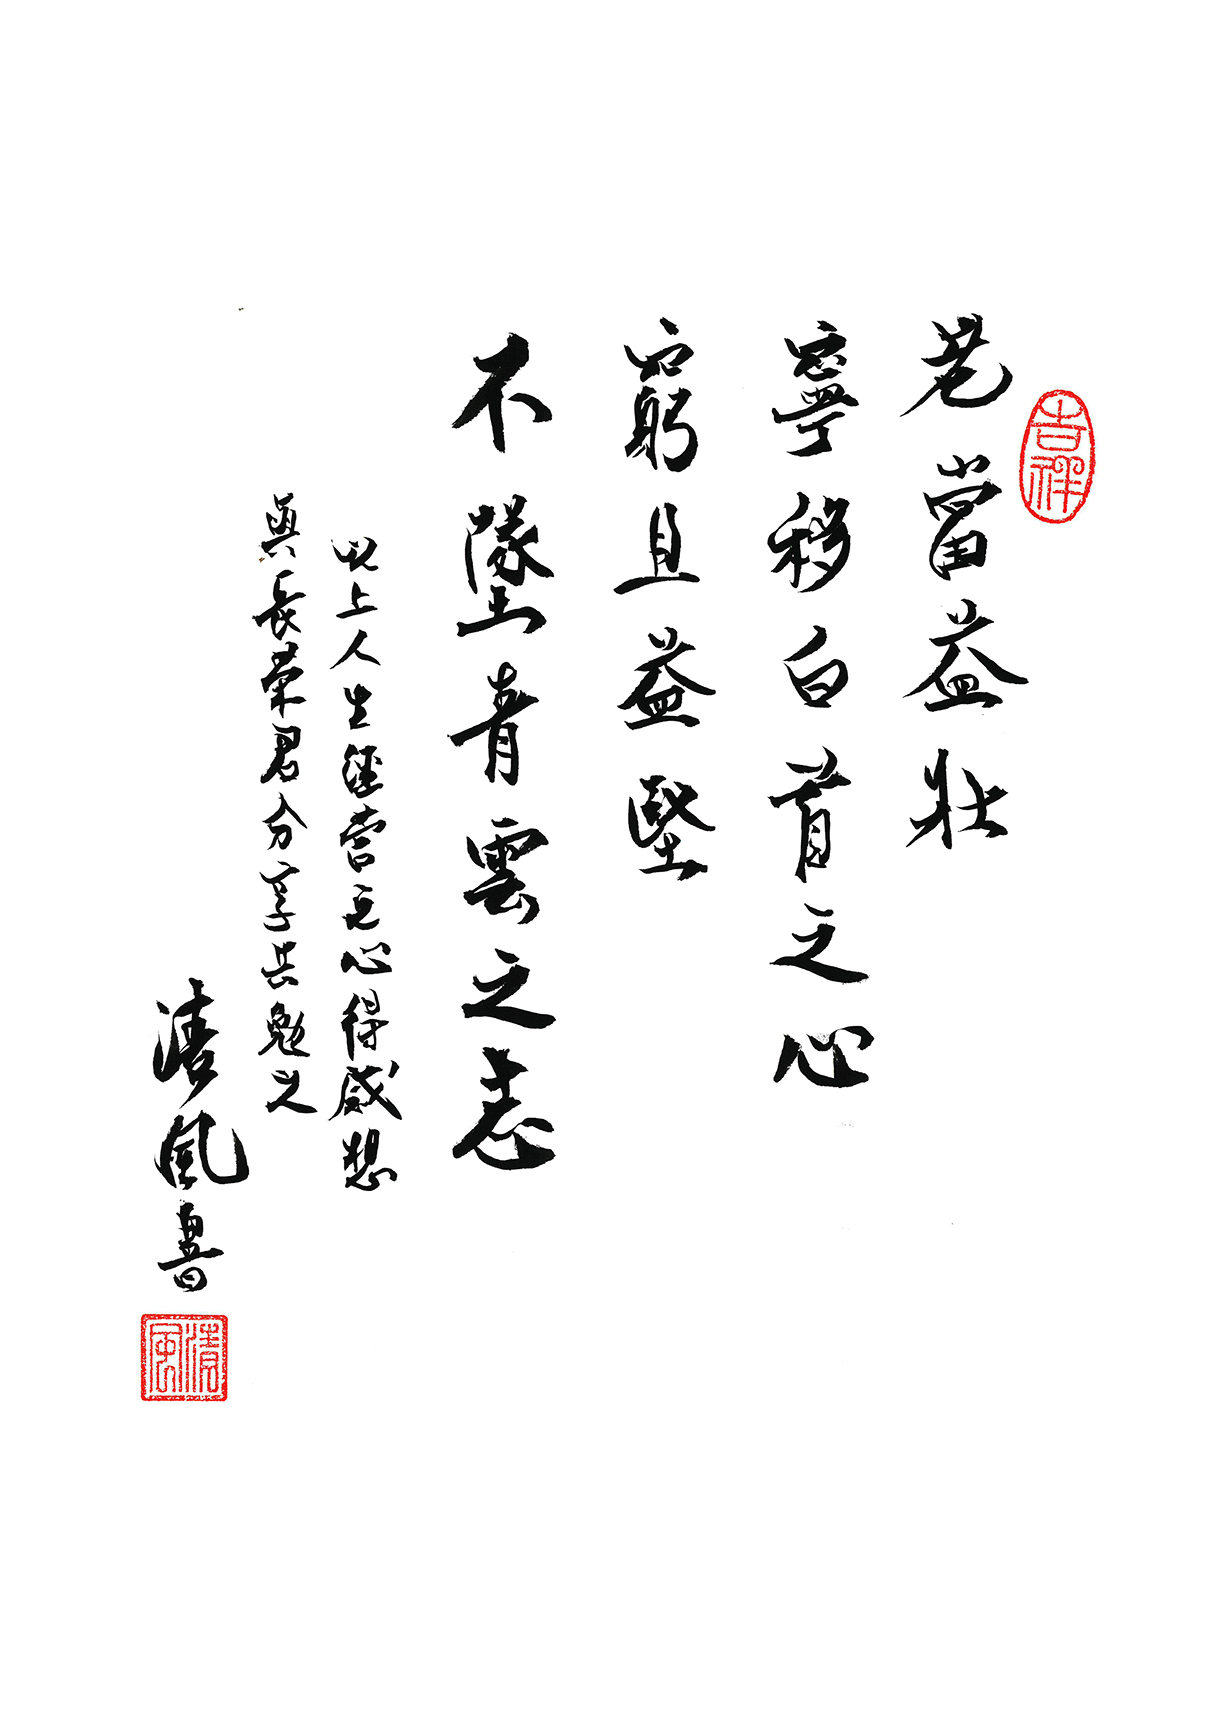 吉祥
老當益壯
寧移白首之心
窮且益堅
不墜青雲之志
以上人生經營之心得感想
與長榮君分享共勉之
清風書
清風